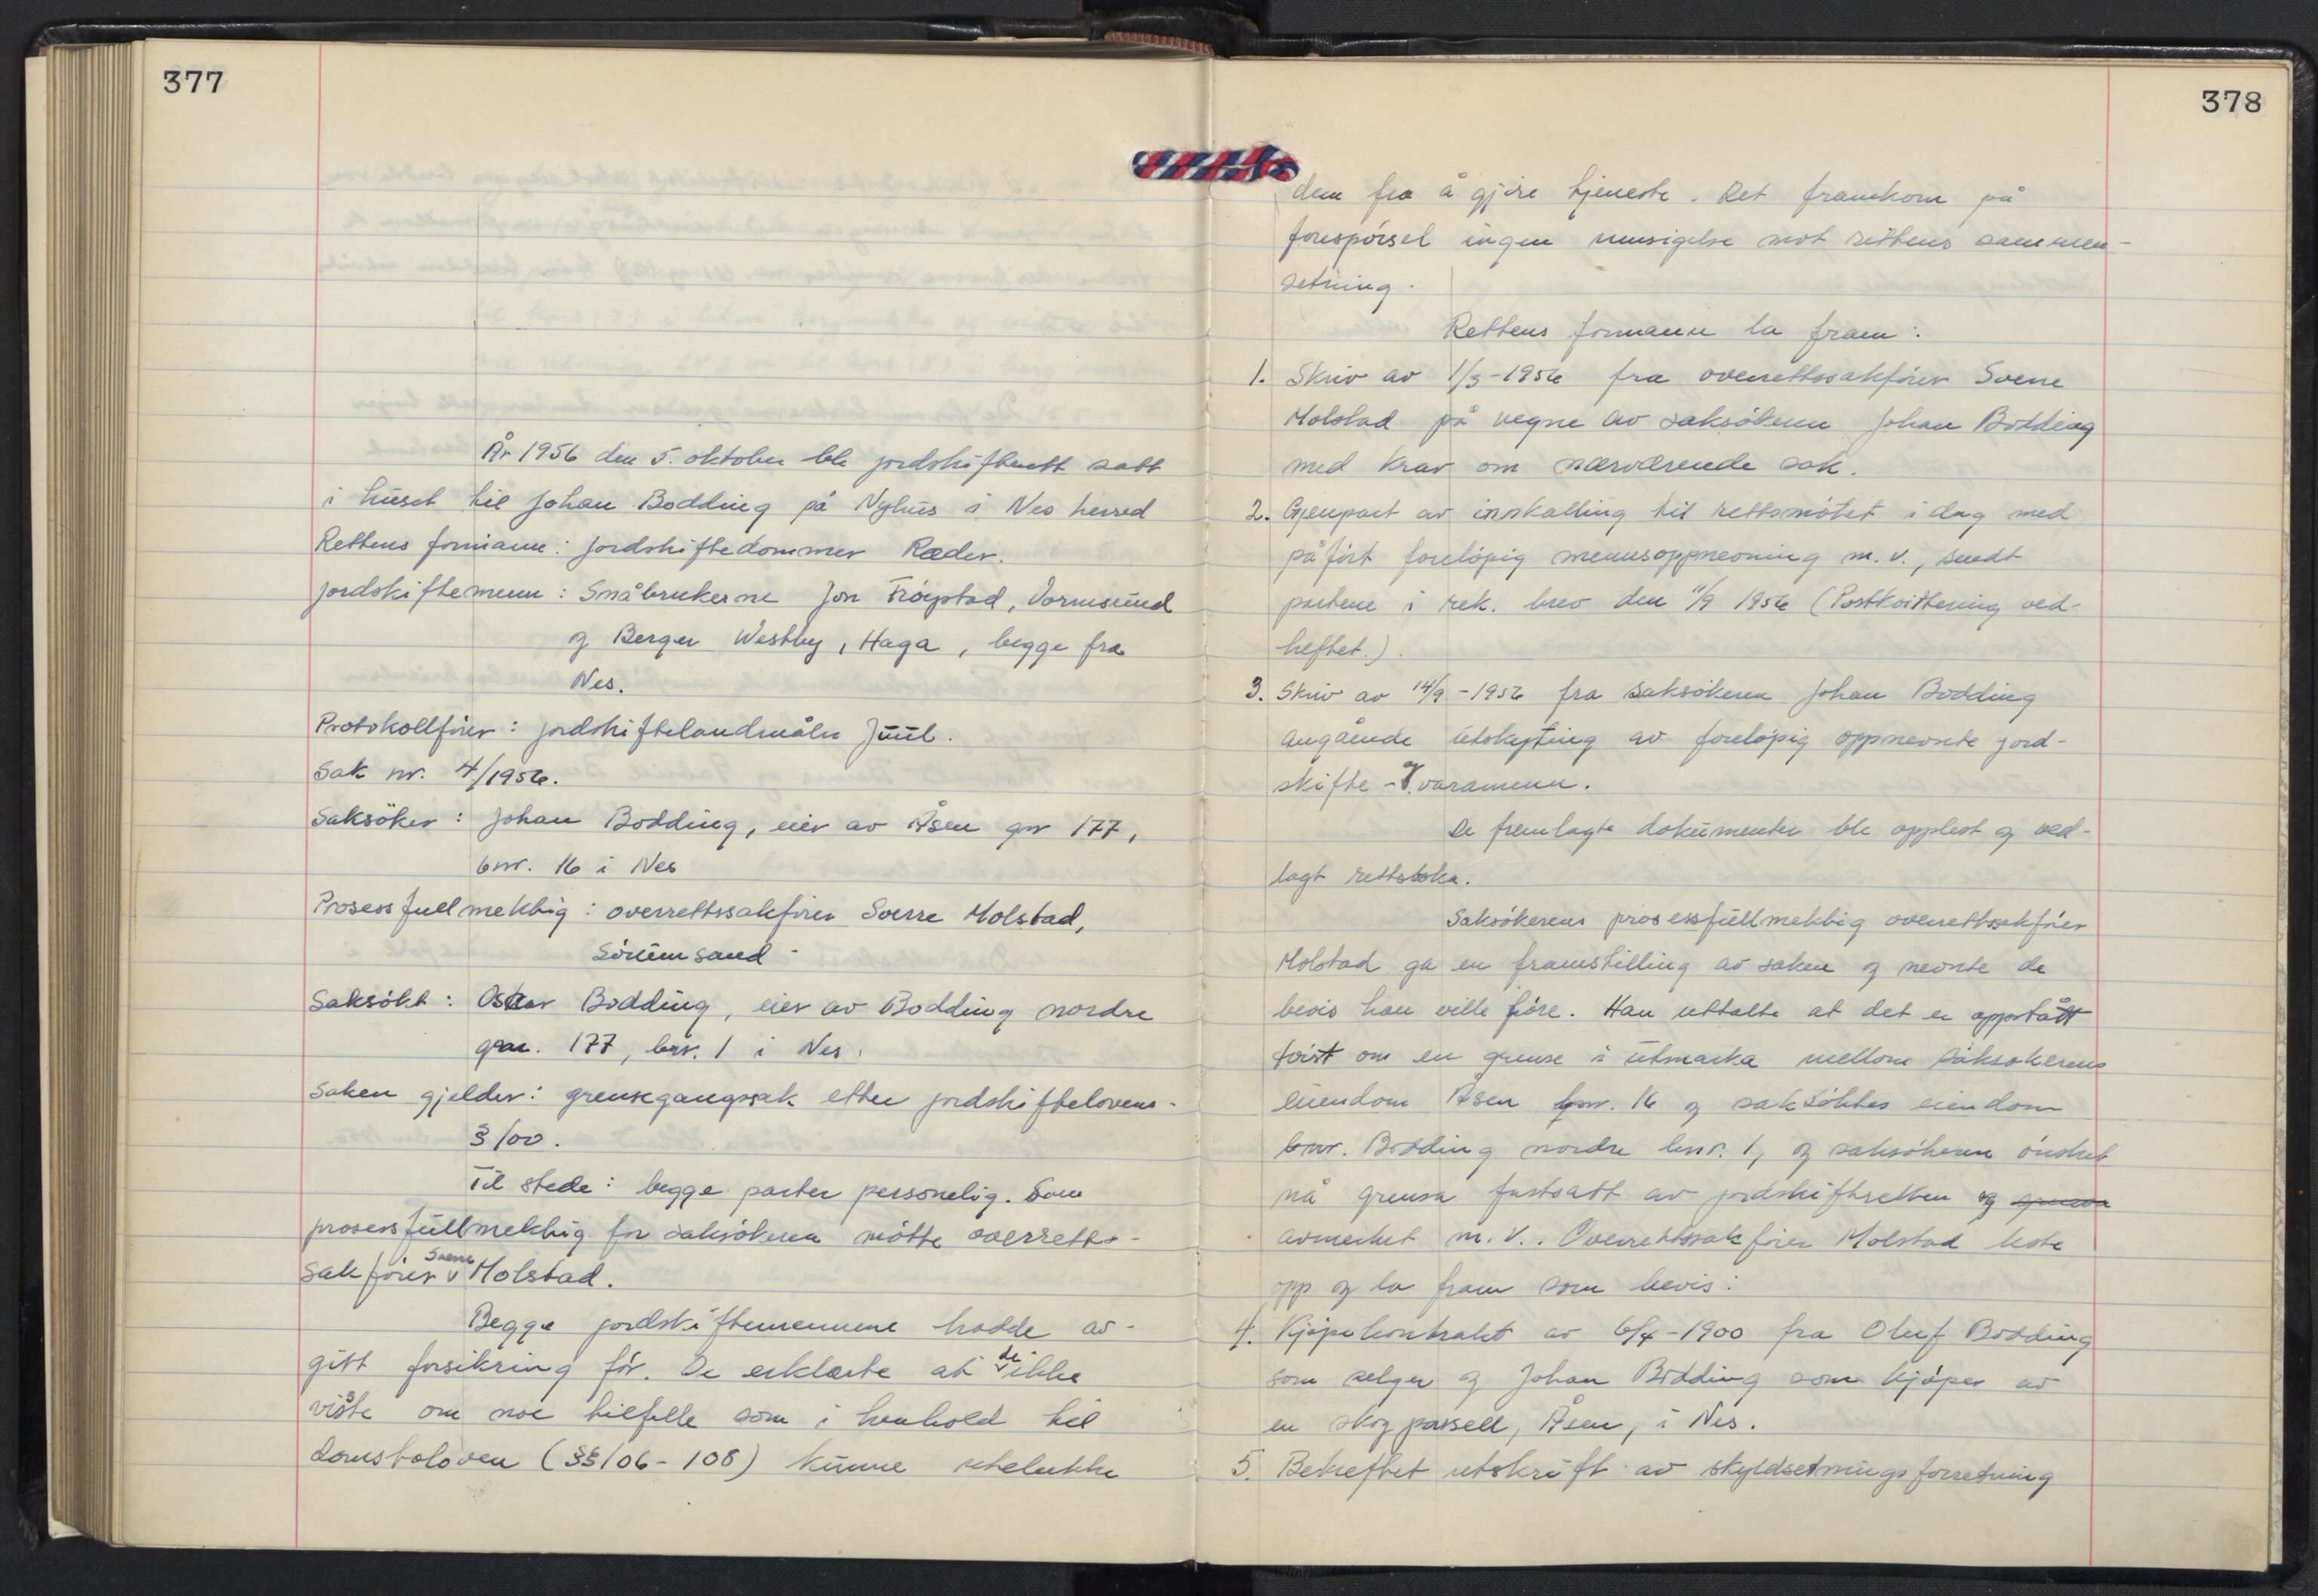 377
År 1956 den 5. oktober ble jordskifterett satt
i huset til Johan Bodding på Nyhus i Nes herred
Rettens formann: jordskiftedommer Ræder.
Jordskiftemenn: Småbrukerne Jon Frøystad, Vormsund
og Berger Westby, Haga, begge fra
Nes.
Protokollfører: jordskiftelandmåler Juul.
Sak nr. 4/1956.
Saksøker: Johan Bodding, eier av Åsen gnr 177,
bnr. 16 i Nes
Prosessfullmektig: overrettssakfører Sverre Molstad,
Sørumsand
Saksøkt: Oskar Bodding, eier av Bodding nordre
gnr. 177, bnr. 1 i Nes.
Saken gjelder: grensegangssak etter jordskiftelovens
§ 100.
Til stede: begge parter personelig. Som
prosessfullmektig for saksøkeren møtte overretts-
sakfører Sverre Molstad.
Begge jordskiftemennene hadde av-
gitt forsikring før. De erklærte at de ikke
visste om noe tilfelle som i henhold til
domstoloven (§§ 106-108) kunne utelukke
378
dem fra å gjøre tjeneste. Det framkom på
forespørsel ingen innsigelse mot rettens sammen-
setning.
Rettens formann la fram:
1. Skriv av 1/3-1956 fra overrettssakfører Sverre
Molstad på vegne av saksøkeren Johan Bodding
med krav om nærværende sak.
2. Gjenpart av innkalling til rettsmøtet i dag med
påført foreløpig mennsoppnevning m.v., sendt
partene i rek. brev den 11/9 1956 (Postkvittering ved-
heftet.).
3. Skriv av 14/9-1956 fra saksøkeren Johan Bodding
angående utskyting av foreløpig oppnevnte jord-
skifte- varamenn.
De fremlagte dokumenter ble opplest og ved-
lagt rettsboka.
Saksøkerens prosessfullmektig overrettssakfører
Molstad ga en framstilling av saken og nevnte de
bevis han ville føre. Han uttalte at det er oppstått
tvist om en grense i utmarka mellom saksøkerens
eiendom Åsen bnr. 16 og saksøktes eiendom
bnr. Bodding nordre bnr. 1, og saksøkeren ønsket
nå grensa fastsatt av jordskifteretten og grensa
avmerket m.v.. Overrettssakfører Molstad leste
opp og la fram som bevis:
4. Kjøpekontrakt av 6/4-1900 fra Oluf Bodding
som selger og Johan Bodding som kjøper av
en skogparsell, Åsen, i Nes.
5. Bekreftet utskrift av skyldsetningsforretning